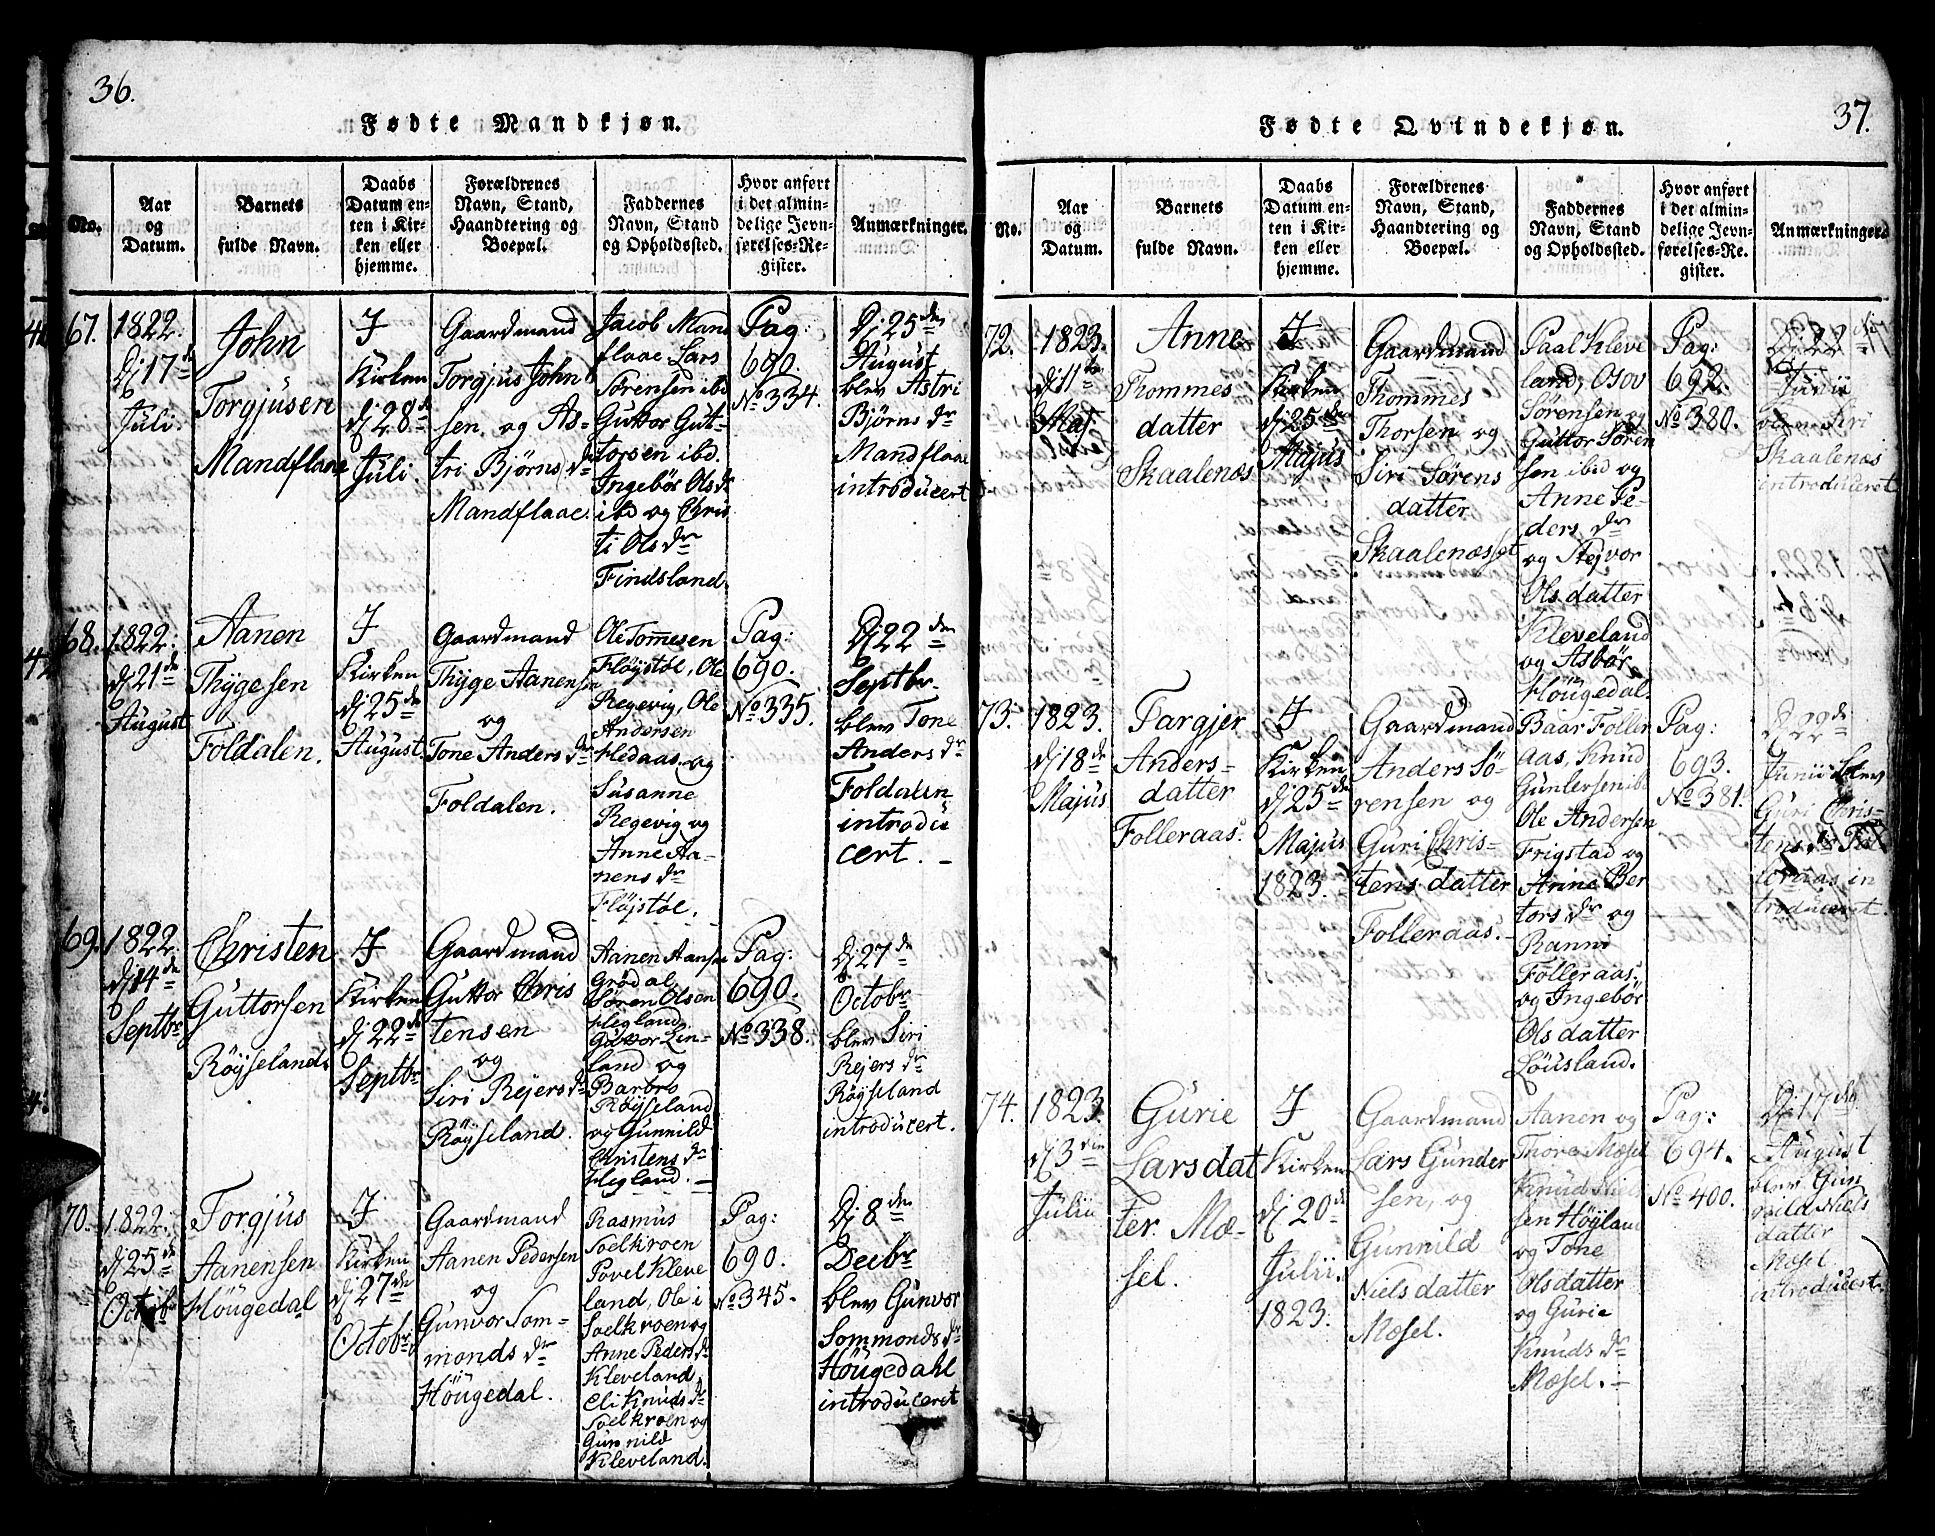 36.
Fødte Mandkjøn.
No.
Aar
og
Datum.
Barnets
fulde Navn.
Daabs
Datum en-
ten i Kir-
ken eller
hjemme.
Forældrenes
Navn, Stand,
Haandtering og
Boepæl.
Faddernes
Navn, Stand
og Opholdssted.
Hvor anført
i det almin-
delige Jevn-
førelses-Re-
gister.
Anmærkninger.
67.
1822.
Dj 17de
Juli.
John
Torgjusen
Mandflaae
I
Kirken
dj 28de
Juli.
Gaardmand
Torgjus John
sen og As-
tri Bjørns dr
Mandflaae.
Jacob Mand
flaae Lars
Sörensen ibd
Guttor Gut-
torsen ibd.
Ingebör Ols dr
ibd og Chris
ti Ols dr
Findsland.
Pag:
690.
No 334.
Dj 25den
August
blev Astri
Björns dr
Mandflaae
introducert
68.
1822.
dj 21de
August
Aanen
Thygesen
Foldalen.
I
Kirken
dj 25de
August
Gaardmand
Thyge Aanensen
og
Tone Anders dr
Foldalen.
Ole Tommesen
Flöjstöl, Ole
Regevig, Ole
Andersen
Hedaas og
Susanne
Regevig og
Anne Aa-
nens dr
Flöjstöl.
Pag:
690.
No 335.
Dj 22den
Septbr.
blev Tone
Anders dr
Foldalen
introdu
cert. -
69.
1822.
dj 14de
Septbr
Christen
Guttorsen
Röyseland.
I
Kirken
dj 22de
Septbr
Gaardmand
Guttor Chris
tensen
og
Siri Rejers dr
Röyseland.
Aanen Aansen
Grödal
Sören Olsen
Hegland
Guvor Lin-
land og
Barbro
Röyseland
og Gunnild
Christens dr
Hegland. -
Pag:
690.
No 338.
Dj 27de
Octobr
blev Siri
Rejers dr
Röyseland
introducert.
70.
1822.
dj 25de
Octobr
Torgjus
Aanensen
Höugedal
I
Kirken
dj 27de
Octobr
Gaardmand
Aanen Pedersen
og
Gunvor Som-
monds dr
Höugedal.
Rasmus
Soelkroen
Povel Kleve
land, Ole i
Soelkroen og
Anne Peders dr
Kleveland
Eli Knuds dr
Soelkroen og
Gunnild
Kleveland.
Pag:
690.
No 345.
Dj 8den
Decbr
blev Gunvor
Sommonds dr
Höugedahl
introduceret
37.
Fødte Qvindekjøn.
No.
Aar
og
Datum.
Barnets
fulde Navn.
Daabs
Datum en-
ten i Kir-
ken eller
hjemme.
Forældrenes
Navn, Stand,
Haandtering og
Boepæl.
Faddernes
Navn, Stand
og Opholdssted.
Hvor anført
i det almin-
delige Jevn-
førelses-Re-
gister.
Anmærkninger.
72.
1823.
dj 11te
Maj.
Anne
Thommes
datter
Skaalenæs
I
Kirken
dj 25de
Majus
Gaardmand
Thommes
Thorsen og
Siri Sörens
datter
Skaalenæsset
Paal Kleve
land, Osov
Sørensen og
Guttor Sören
sen ibd og
Anne Pe-
ders dr
og Rejvor
Olsdatter
Kleveland
og Asbör
Höugedal
Pag:
692.
No 380.
Dj 22
Junii
Siri
Skaalenæs
introduceret
73.
1823.
dj 18de
Majus
Targjer
Anders-
datter
Folleraas.
I
Kirken
dj 25de
Majus
1823.
Gaardmand
Anders Sö-
rensen og
Guri Chris-
tens datter
Folleraas. -
Baar Foller
aas, Knud
Gunlersen ibd
Ole Andersen
Frigstad og
Anne Ber
tors dr og
Ranni
Folleraas
og Ingebör
Ols datter
Löusland.
Pag:
693.
No 381.
Dj 22de
Junii blev
Guri Chris-
tens dr Fol
leraas in
troduceret.
74.
1823.
dj 3die
Julii
Gurie
Larsdat
ter. Mæ-
sel.
I
Kirken
dj 20de
Julii.
1823.
Gaardmand
Lars Gunder
sen, og
Gunnild
Niels datter
Mæsel.
Aanen og
Thore Mæsel
Knud Niel
sen Höyland
og Tone
Olsdatter
og Gurie
Knuds dr
Mæsel. -
Pag:
694.
No 400.
Dj 17den
August
blev Gun
nild Niels
datter
Mæsel
introduceret.